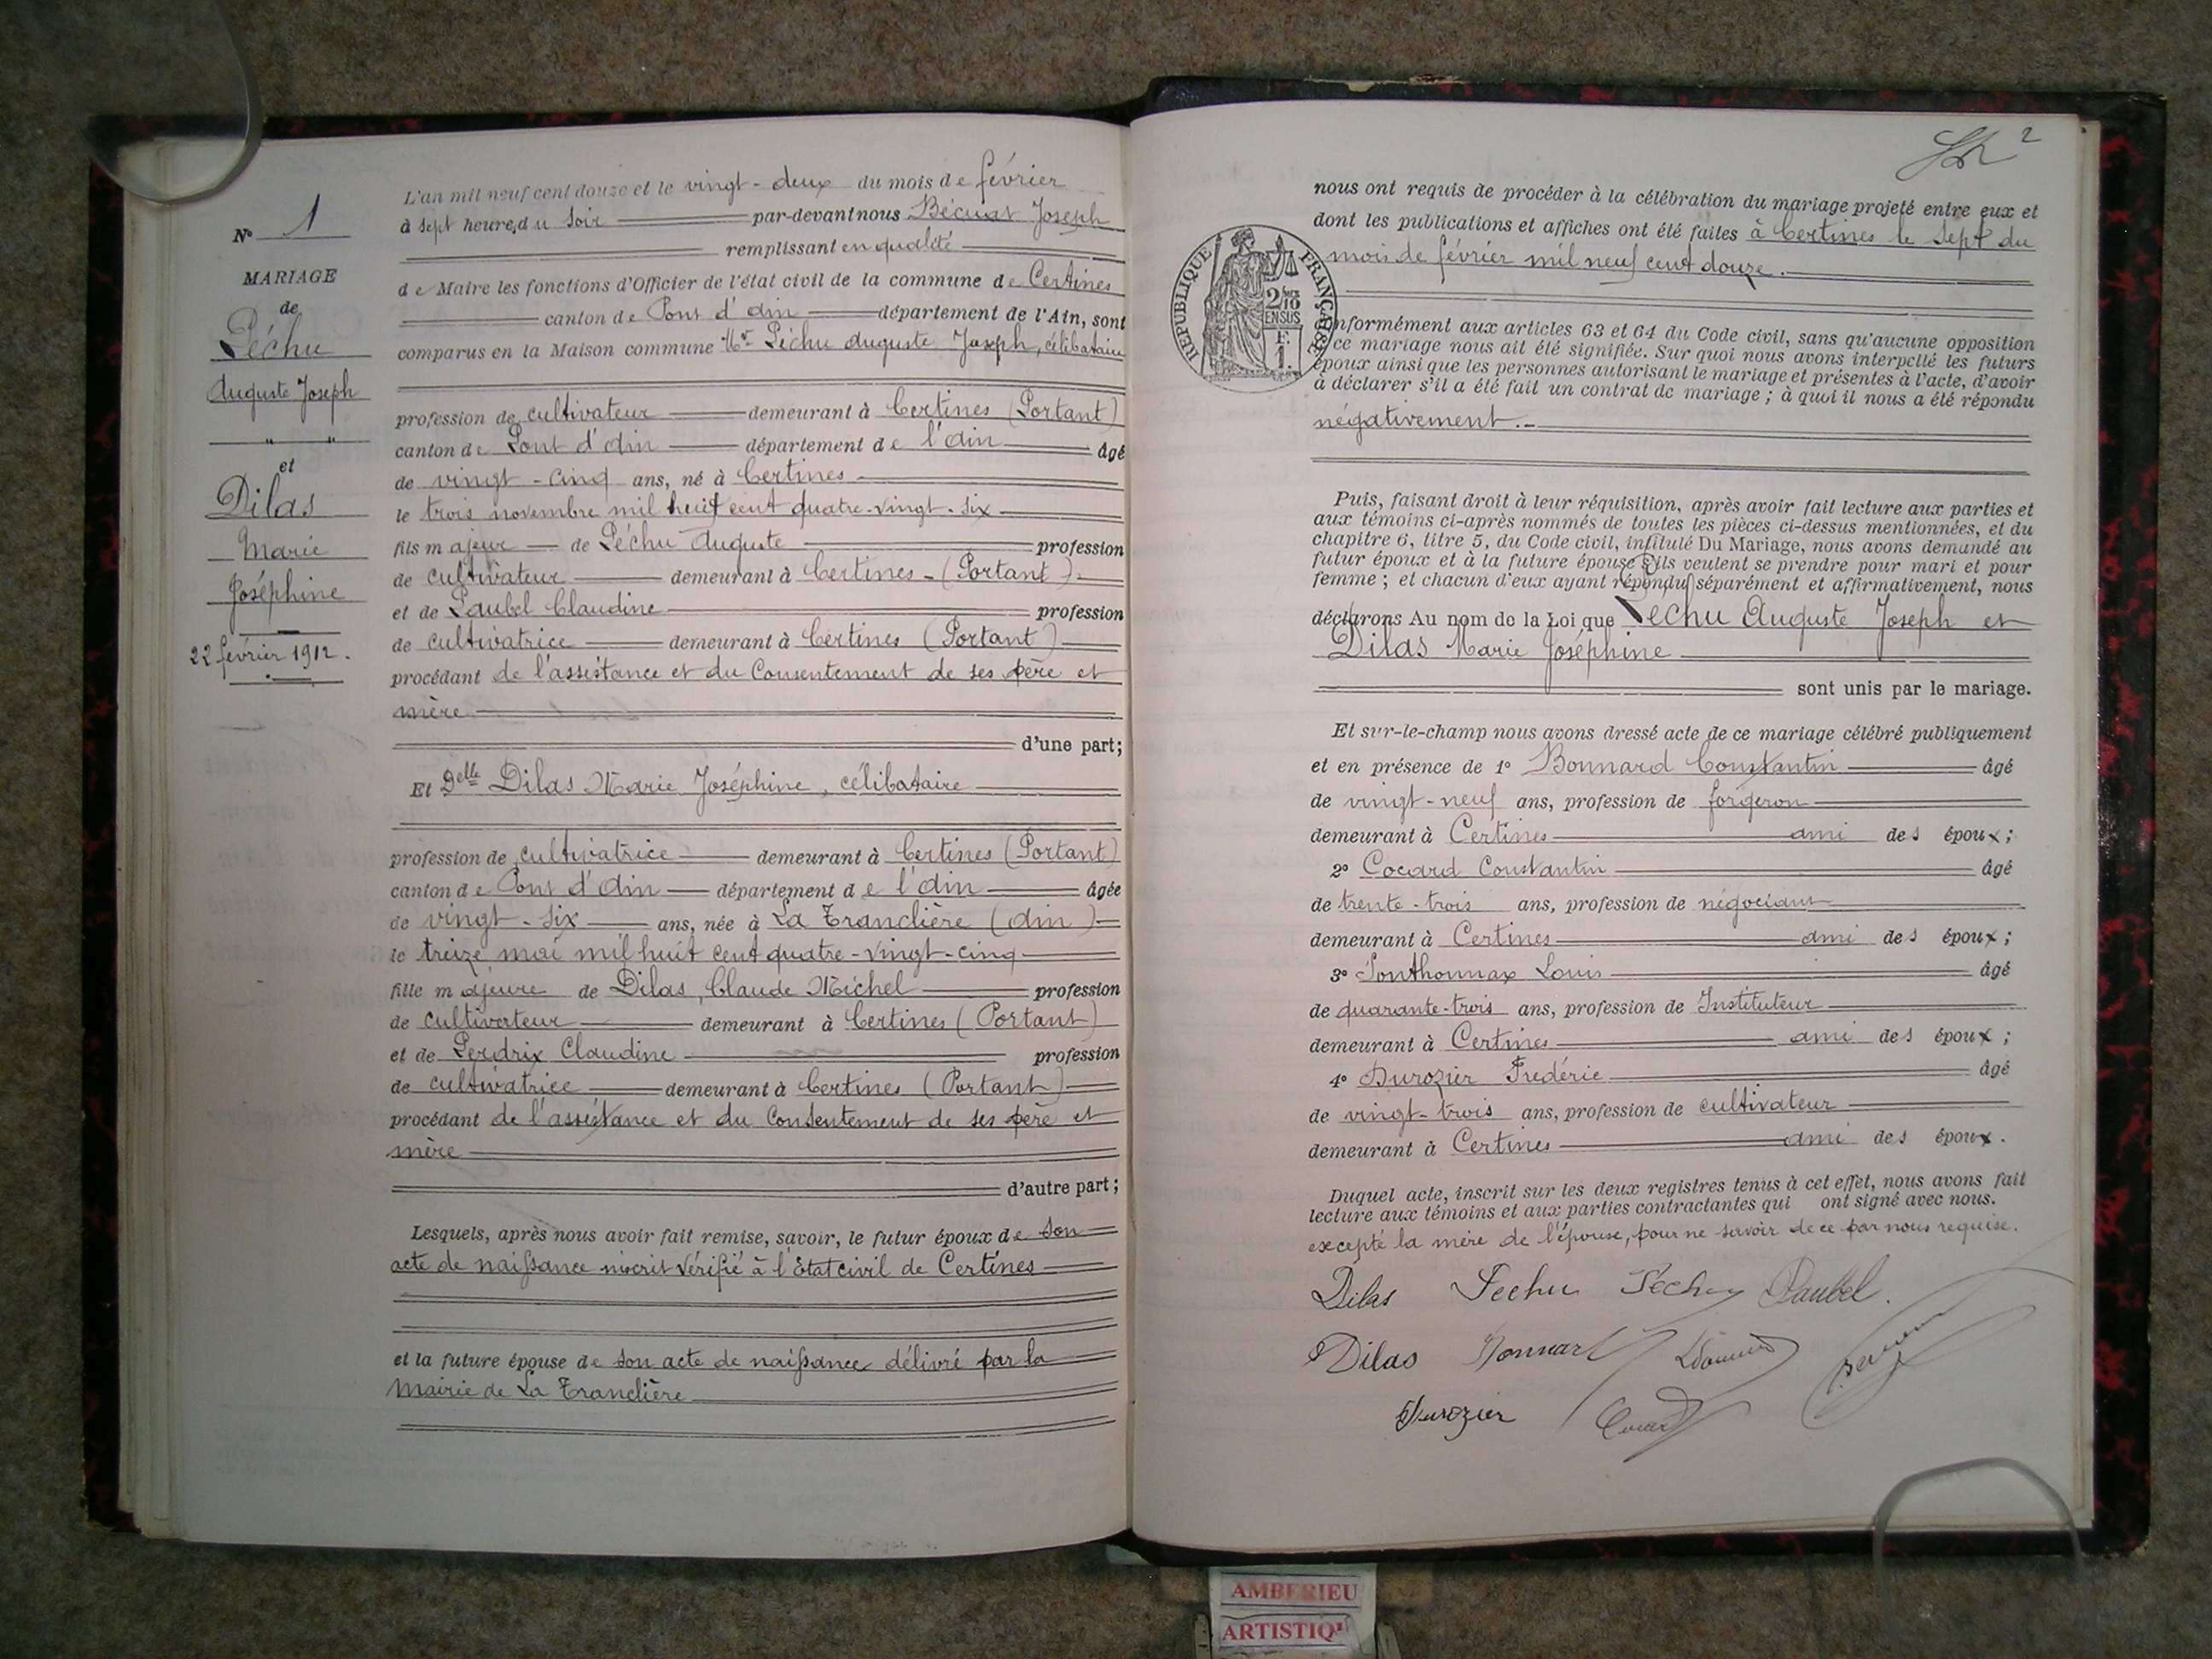 N° 1
MARIAGE
de
Péchu
Auguste Joseph
" "
et
Dilas
Marie
Joséphine
22 février 1912.
L'an mil neuf cent douze et le vingt-deux du mois de février
à sept heures du soir par-devant nous Joseph
remplissant en qualité
de Maire les fonctions d'Officier de l'état civil de la commune de Certines
canton de Pont d'Ain département de l'Ain, sont
comparus en la Maison commune Mr Péchu Auguste Joseph, célibataire
profession de cultivateur demeurant à Certines (Portant)
canton de Pont d'Ain département de l'Ain âgé
de vingt-cinq ans, né à Certines
le trois novembre mil huit cent quatre-vingt-six
fils majeur de Péchu Auguste profession
de cultivateur demeurant à Certines - (Portant)
et de Paubel Claudine profession
de cultivatrice demeurant à Certines (Portant)
procédant de l'assistance et du Consentement de ses père et
mère
d'une part;
Et Delle Dilas Marie Joséphine, célibataire
profession de cultivatrice demeurant à Certines (Portant)
canton de Pont d'Ain département de l'Ain âgée
de vingt-six ans, née à La Tranclière (Ain)
le treize mai mil huit cent quatre-vingt-cinq
fille majeure de Dilas, Claude Michel profession
de cultivateur demeurant à Certines (Portant)
et de Perdrix Claudine profession
de cultivatrice demeurant à Certines (Portant)
procédant de l'assistance et du Consentement de ses père et
mère
d'autre part;
Lesquels, après nous avoir fait remise, savoir, le futur époux de son
acte de naissance inscrit vérifié à l'Etat civil de Certines
et la future épouse de son acte de naissance délivré par la
Mairie de La Tranclière
2
nous ont requis de procéder à la célébration du mariage projeté entre eux et
dont les publications et affiches ont été faites à Certines le sept du
mois de février mil neuf cent douze.
RÉPUBLIQUE FRANÇAISE
2/10 EN SUS
F.
1.
conformément aux articles 63 et 64 du Code civil, sans qu'aucune opposition
à ce mariage nous ait été signifiée. Sur quoi nous avons interpellé les futurs
époux ainsi que les personnes autorisant le mariage et présentes à l'acte, d'avoir
à déclarer s'il a été fait un contrat de mariage ; à quoi il nous a été répondu
négativement.
Puis, faisant droit à leur réquisition, après avoir fait lecture aux parties et
aux témoins ci-après nommés de toutes les pièces ci-dessus mentionnées, et du
chapitre 6, titre 5, du Code civil, intitulé Du Mariage, nous avons demandé au
futur époux et à la future épouse s'ils veulent se prendre pour mari et pour
femme ; et chacun d'eux ayant répondu séparément et affirmativement, nous
déclarons Au nom de la Loi que Péchu Auguste Joseph et
Dilas Marie Joséphine
sont unis par le mariage.
Et sur-le-champ nous avons dressé acte de ce mariage célébré publiquement
et en présence de 1° Bonnard Constantin âgé
de vingt-neuf ans, profession de forgeron
demeurant à Certines ami des époux ;
2° Cocard Constantin âgé
de trente-trois ans, profession de négociant
demeurant à Certines ami des époux ;
3° Ponthonnax Louis âgé
de quarante-trois ans, profession de Instituteur
demeurant à Certines ami des époux ;
4° Durozier Frédéric âgé
de vingt-trois ans, profession de cultivateur
demeurant à Certines ami des époux.
Duquel acte, inscrit sur les deux registres tenus à cet effet, nous avons fait
lecture aux témoins et aux parties contractantes qui ont signé avec nous.
excepté la mère de l'épouse, pour ne savoir de ce par nous requise.
Dilas Péchu Péchu Paubel.
Dilas Bonnard
Durozier Cocard
AMBERIEU
ARTISTIQ